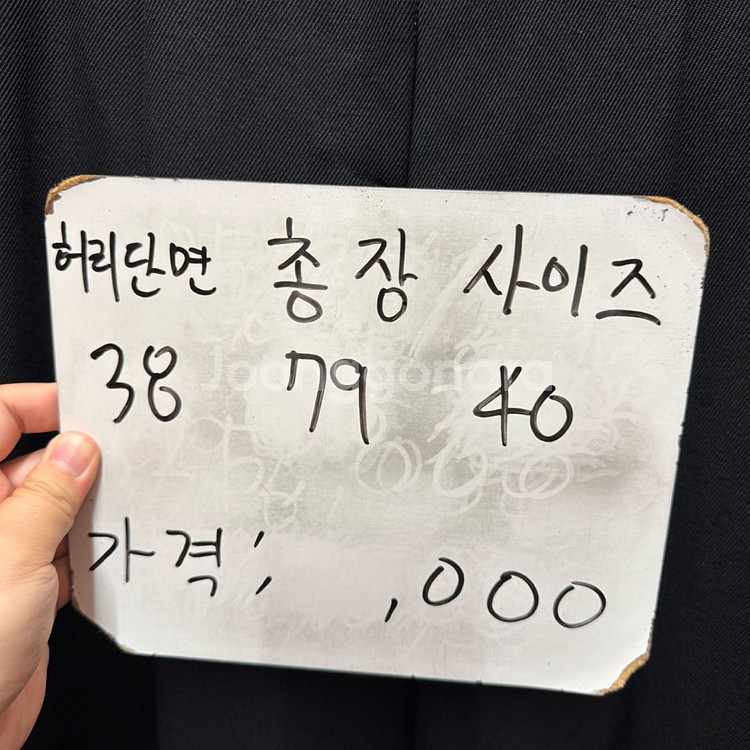 허리단면 총장 사이즈
38 79 40
Joonggonara
가격; ,000